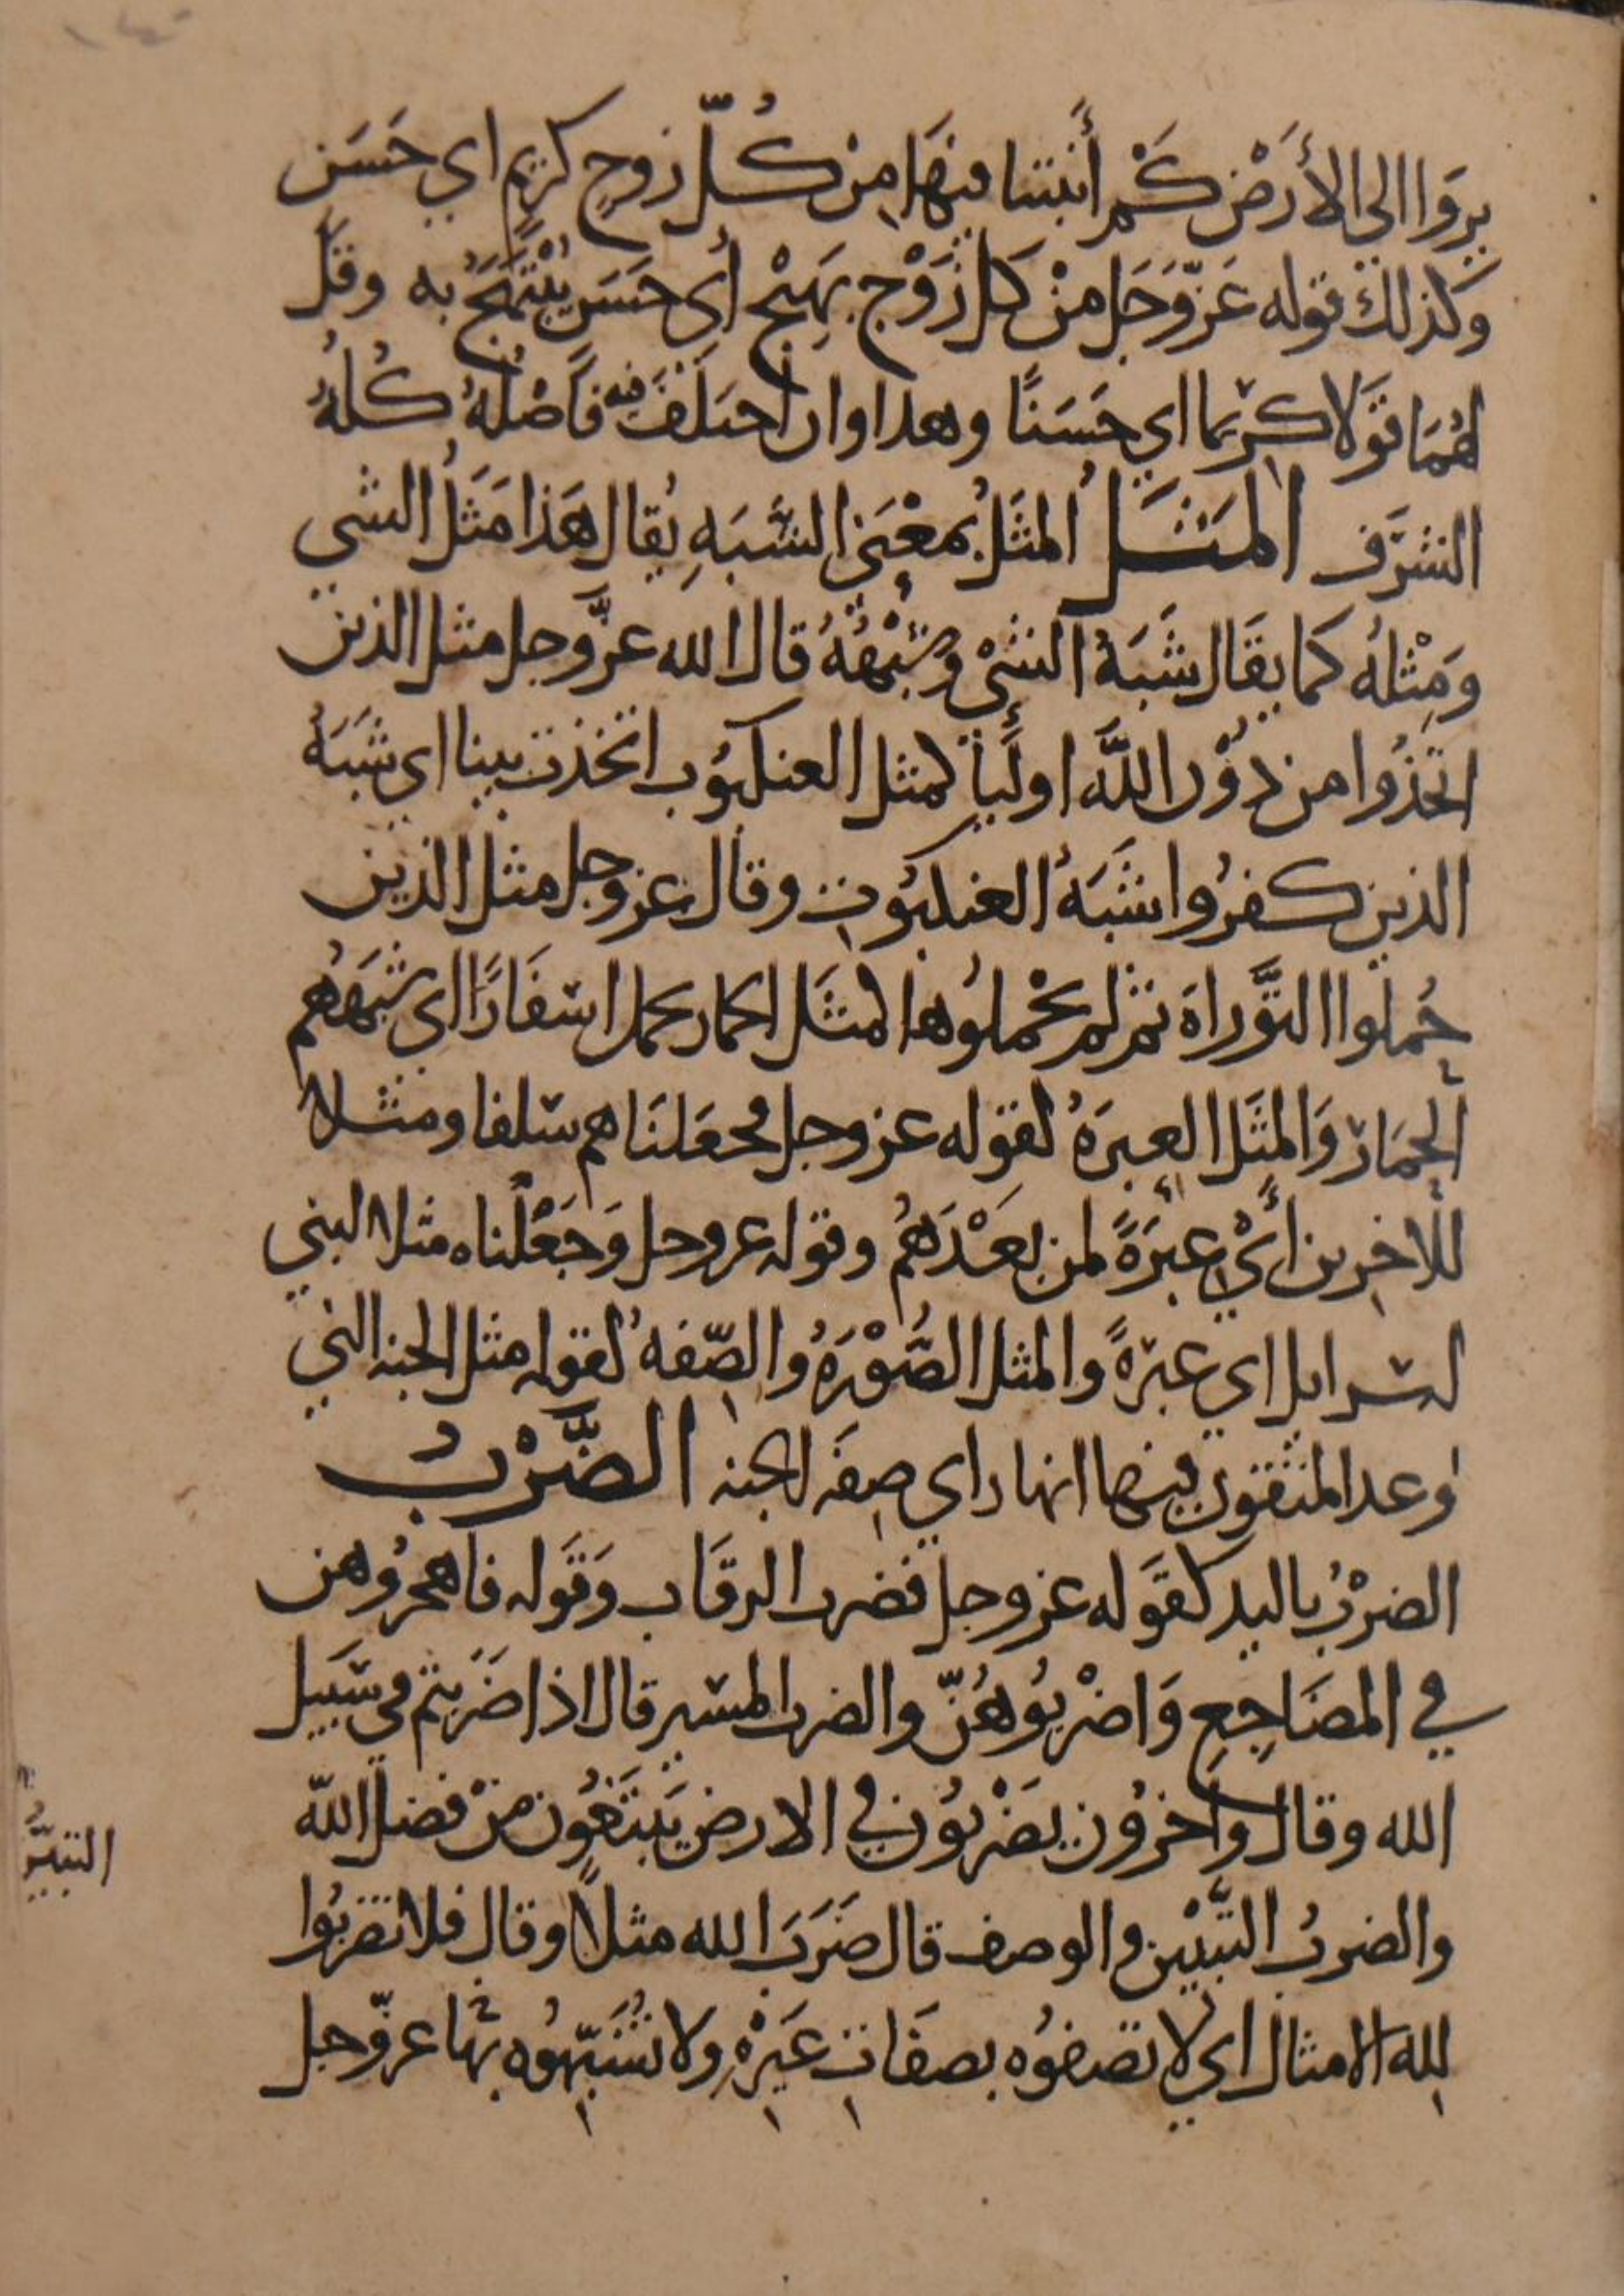 يروا الى الأَرَضْ كَمْ أَنبتنا فيهَا مِنْ كُلّ زوجٍ كريم اي حَسَن
وكذلك قوله عَزّ وَجَل منْ كل زَوْج بَهيْج أي حَسَن يُبْتَهَجُ به وقل
لهُمَا قَوَلا كريما اي حَسَنًا وهدا وان اختلَفَ فيه فَأصْلُهُ كُلهُ
الشرَف المَثَل المثَلُ بمعْنَى الشَّبَهِ يُقال هَذا مَثَلُ الشي
وَمِثْلهُ كما يقَال شَبَهُ الشَىْ وَشِبْهُهُ قال الله عزَّ وجل مثل الذين
اتخذُوا من دُوْن اللَّه اولَيأ كمثل العنكبُوب اتخذت بيتا اي شَبَهُ
الذين كفرُوا شَبَهُ العنكبُوت وقال عز وجل مثل الذين
حُملوا التَّوراة ثم لم يحْملُوها كمثَل الحمار يحمل اسفَارًا اي شَبَههُم
الحِمَار وَالمثَل العِبرَةُ لقوله عز وجل فجعَلنَاهم سلفا ومثلا
للاخِرين أيْ عِبَرَةً لمن بعَدَهُم وقوله عز وجل وَجَعْلناه مثلا لبني
اسرايل اي عبرةً والمثل الصُّوْرَةُ والصّفه لقوله مثل الجنه التي
وعد المتقون فيها انهار اي صِفَه الجنه الضَّرْبُ
الضرْبُ باليد كقَوله عز وجل فضرب الرقَاب وَقَوله فاهجرُوهن
في المضَاجِعِ وَاضْربُوهُنّ والضرب المسير قال اذا ضَربتم في سَبيل
الله وقال وآخرُون يضَرْبُون في الارض يَبتَغُون منْ فضل اللّه
والضربُ التبَّيْين والوصف قال ضَرَبَ الله مثلًا وقال فلا تضربُوا
لله الامثال اي لا تصفوُه بصفَاتِ غَيَرْهِ ولا تُشَبّهُوه بهَا عزّ وجل
التبيُّن